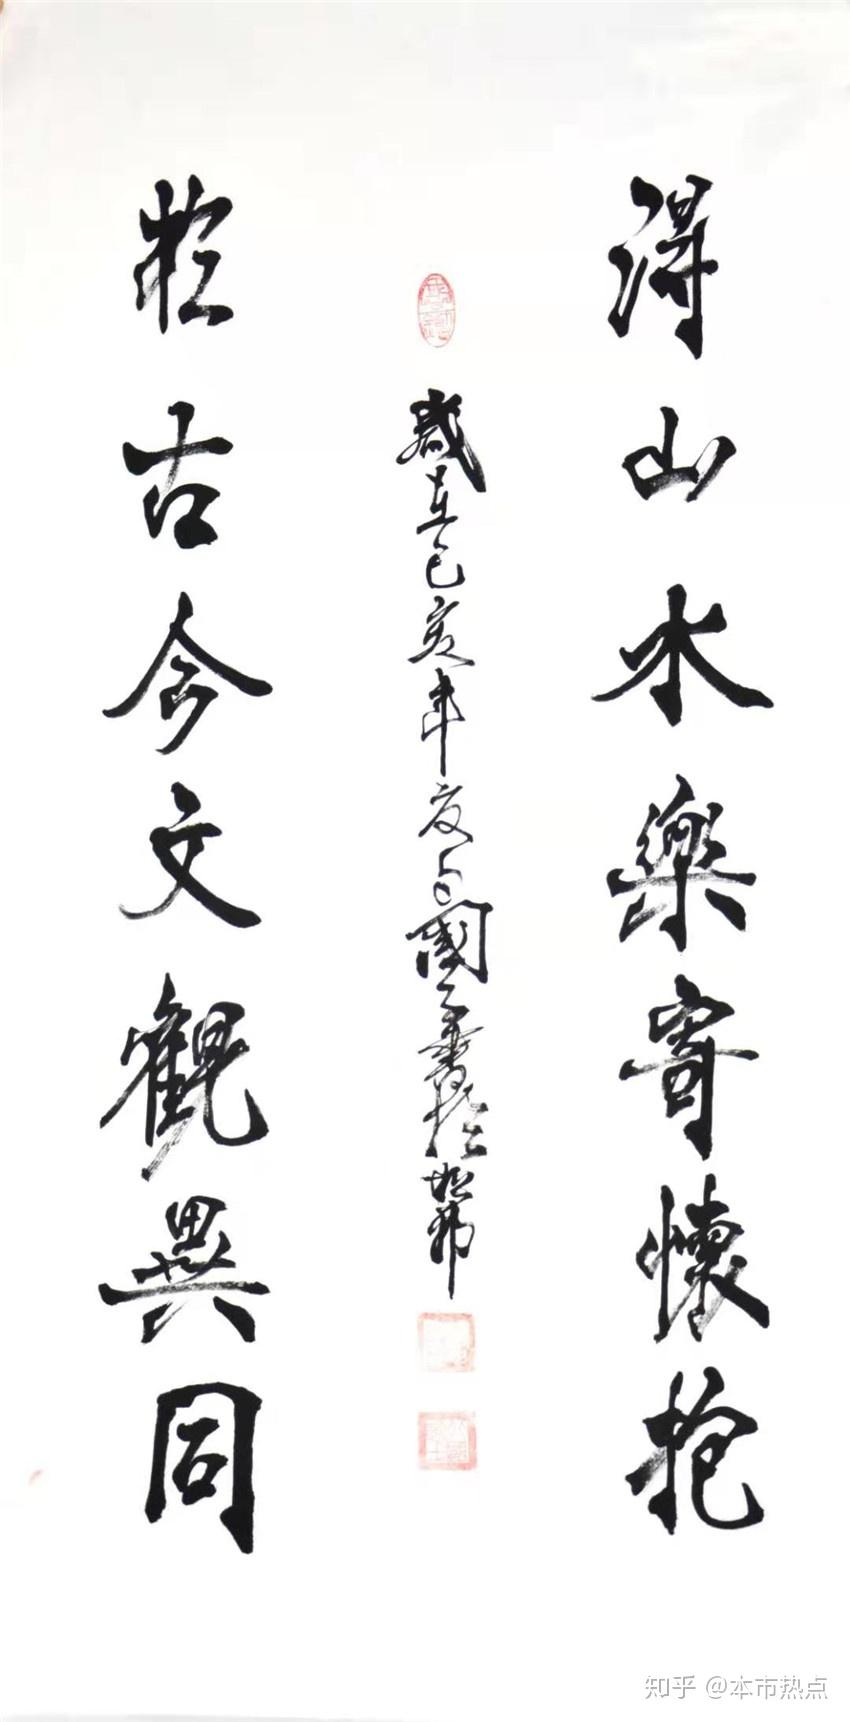 得山水樂寄懷抱
歲在己亥年夏月國玉書於北京
於古今文觀異同
知乎 @本市热点